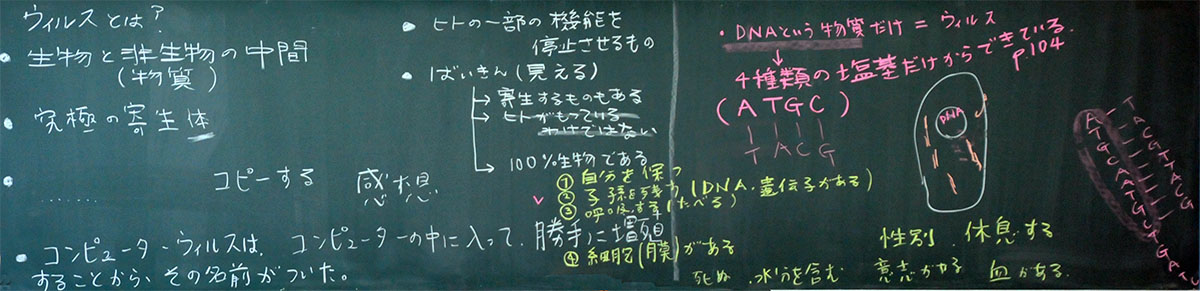 ウィルスとは?
・生物と非生物の中間
(物質)
・究極の寄生体
・
コピーする 感想
........
・コンピューターウィルスは、コンピューターの中に入って、勝手に増殖
することから、その名前がついた。
・ヒトの一部の機能を
停止させるもの
・ばいきん(見える)
→寄生するものもある
→ヒトがもっている
わけではない
→100%生物である
①自分を保つ
②子孫を残す(DNA.遺伝子がある)
③呼吸する(たべる)
④細胞(膜)がある
死ぬ 水分を含む
性別、休息する
意志がある 血がある
・DNAという物質だけ=ウィルス
↓
4種類の塩基だけからできている。
p.104
(ATGC)
TACG
DNA
ATGCAATGC
TACGTTACG